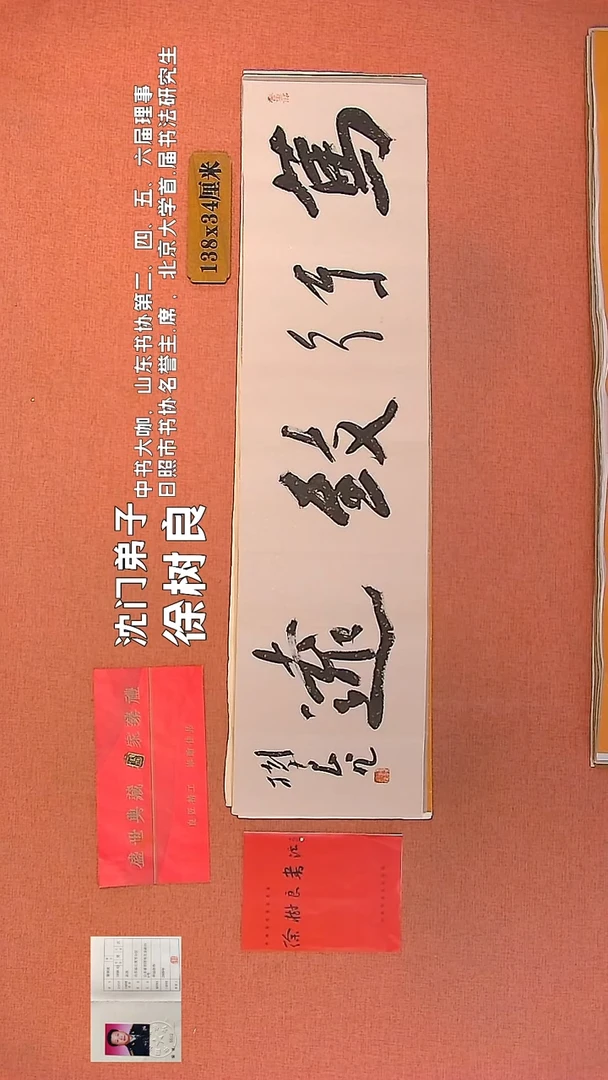 沈门弟子
徐树良
中书大咖、山东书协第二、四、五、六届理事
日照市书协名誉主席、北京大学首届书法研究生
138x34厘米
篤行致遠
樹良
盛世典藏
徐樹良書法